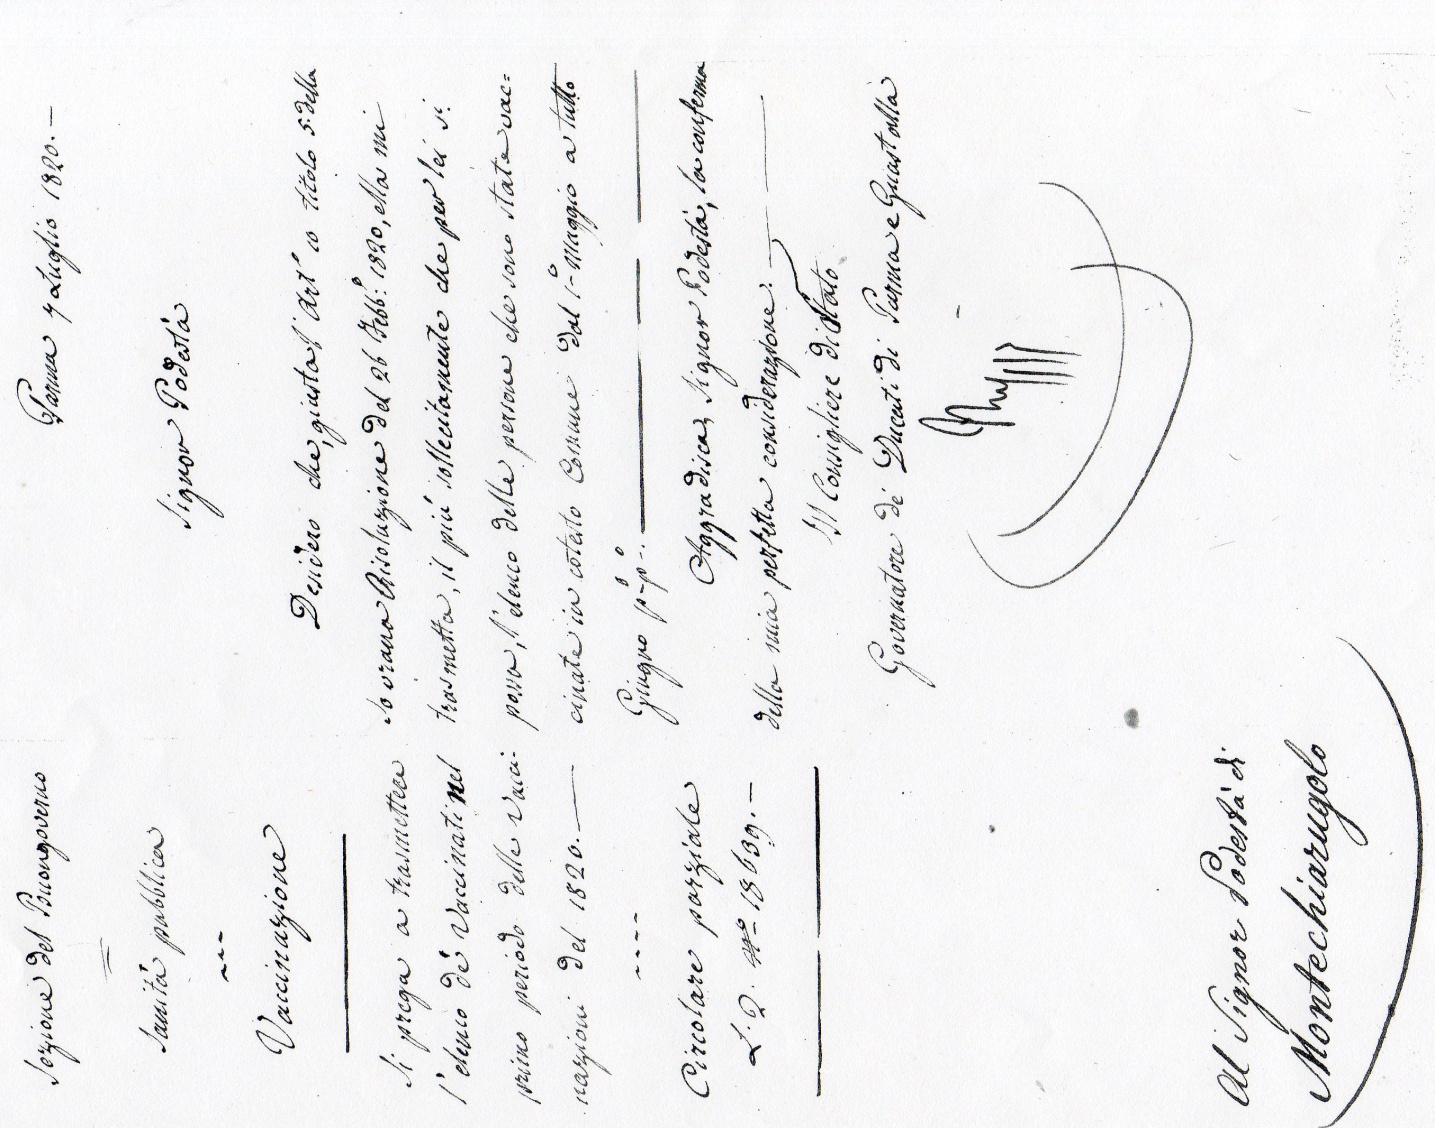 Sezione del Buongoverno
Sanità pubblica
Vaccinazione
Si prega a trasmettere
l'elenco de' Vaccinati nel
primo periodo delle Vacci-
nazioni del 1820.—
Circolare parziale
L. 2. N.º 18639.—
Parma 7 Luglio 1820.—
Signor Podestà
Desidero che, giusta l'Art.º 10 titolo 5. della
Sovrana Risoluzione del 26 Febb.º 1820, ella mi
trasmetta, il più sollecitamente che per lei si
possa, l'elenco delle persone che sono state vac=
cinate in cotesto Comune dal 1.º Maggio a tutto
Giugno p.º p.º
Aggradisca, Signor Podestà, la conferma
della mia perfetta considerazione.
Il Consigliere di Stato
Governatore de' Ducati di Parma e Guastalla
Al Signor Podestà di
Montechiarugolo